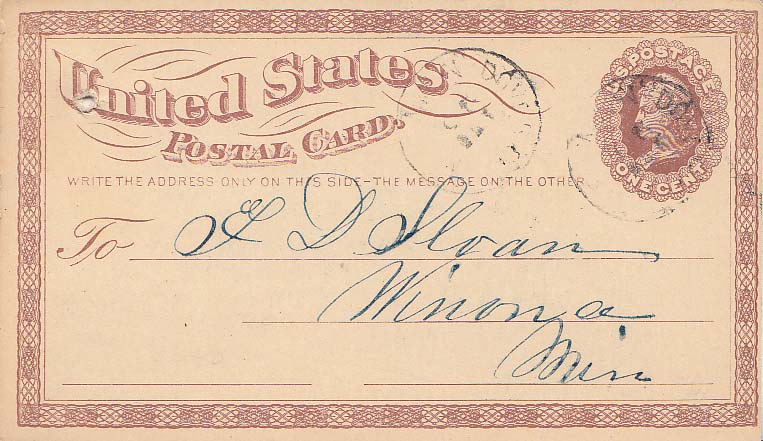 United States
POSTAL CARD.
U.S. POSTAGE
ONE CENT
WRITE THE ADDRESS ONLY ON THIS SIDE-THE MESSAGE ON THE OTHER
To A D Sloan
Winona
Min